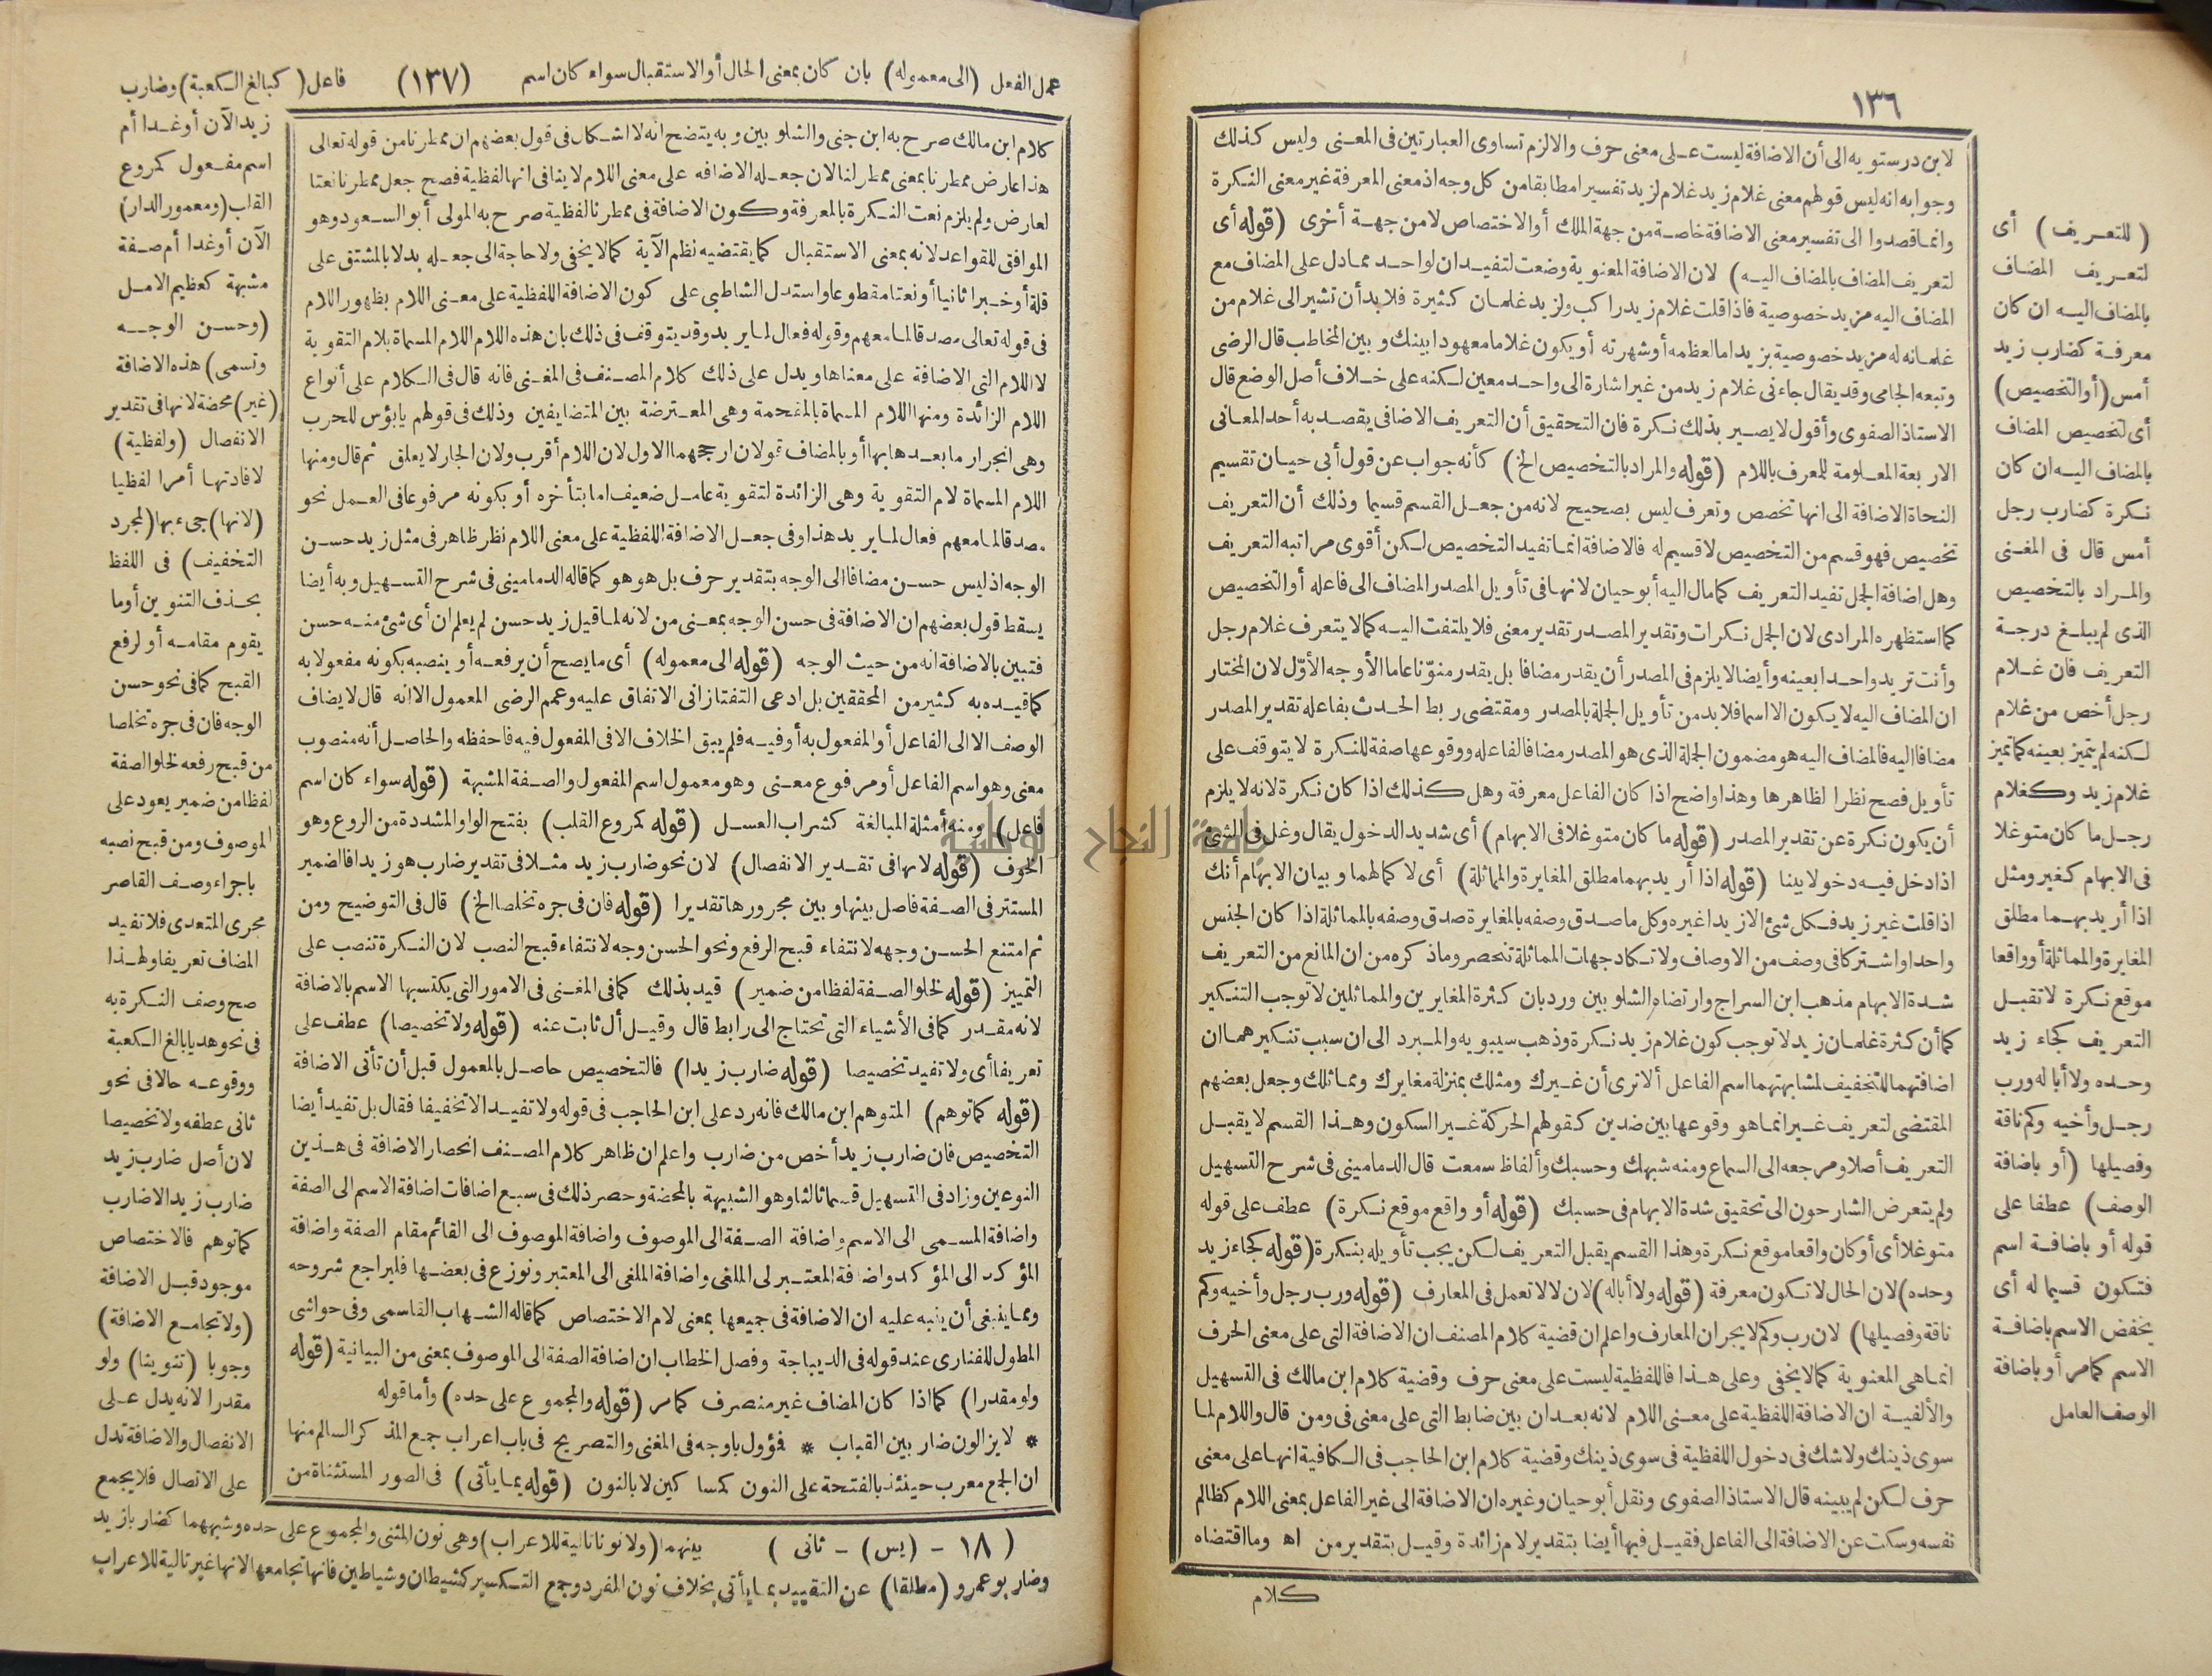 ١٣٦
لابن درستويه الى أن الاضافة ليست على معنى حرف والالزم تساوى العبارتين فى المعنى وليس كذلك
وجوابه انه ليس قولهم معنى غلام زيد غلام لزيد تفسيرا مطابقا من كل وجه اذ معنى المعرفة غير معنى النكرة
وانما قصدوا الى تفسير معنى الاضافة خاصة من جهة الملك أو الاختصاص لا من جهة أخرى (قوله أى
لتعريف المضاف بالمضاف اليه) لان الاضافة المعنوية وضعت لتفيد ان لواحد مما دل على المضاف مع
المضاف اليه مزيد خصوصية فاذا قلت غلام زيد راكب ولزيد غلمان كثيرة فلابد أن تشير الى غلام من
غلمانه له مزيد خصوصية بزيد اما لعظمه أو شهرته أو يكون غلاما معهودا بينك وبين المخاطب قال الرضى
وتبعه الجامى وقد يقال جاءنى غلام زيد من غير اشارة الى واحد معين لكنه على خلاف أصل الوضع قال
الاستاذ الصفوى وأقول لا يصير بذلك نكرة فان التحقيق أن التعريف الاضافى يقصد به أحد المعانى
الاربعة المعلومة للمعرف باللام (قوله والمراد بالتخصيص الخ) كأنه جواب عن قول أبى حيان تقسيم
النحاة الاضافة الى انها تخصص وتعرف ليس بصحيح لانه من جعل القسم قسيما وذلك أن التعريف
تخصيص فهو قسم من التخصيص لا قسيم له فالاضافة انما تفيد التخصيص لكن أقوى مراتبه التعريف
وهل اضافة الجمل تفيد التعريف كما مال اليه أبو حيان لانها فى تأويل المصدر المضاف الى فاعله أو التخصيص
كما استظهره المرادى لان الجمل نكرات وتقدير المصدر تقدير معنى فلا يلتفت اليه كما لا يتعرف غلام رجل
وأنت تريد واحدا بعينه وأيضا لا يلزم فى المصدر أن يقدر مضافا بل يقدر منوّنا عاما الأوجه الأوّل لان المختار
ان المضاف اليه لا يكون الا اسما فلابد من تأويل الجملة بالمصدر ومقتضى ربط الحدث بفاعله تقدير المصدر
مضافا اليه فالمضاف اليه هو مضمون الجملة الذى هو المصدر مضافا لفاعله ووقوعها صفة للنكرة لا يتوقف على
تأويل فصح نظرا لظاهرها وهذا واضح اذا كان الفاعل معرفة وهل كذلك اذا كان نكرة لانه لا يلزم
أن يكون نكرة عن تقدير المصدر (قوله ما كان متوغلا فى الابهام) أى شديد الدخول يقال وغل فى الشئ
اذا دخل فيه دخولا بينا (قوله اذا أريد بهما مطلق المغايرة والمماثلة) أى لا كمالهما وبيان الابهام أنك
اذا قلت غير زيد فكل شئ الا زيدا غيره وكل ما صدق وصفه بالمغايرة صدق وصفه بالمماثلة اذا كان الجنس
واحدا واشتركا فى وصف من الاوصاف ولا تكاد جهات المماثلة تنحصر وما ذكره من ان المانع من التعريف
شدة الابهام مذهب ابن السراج وارتضاه الشلوبين ورد بان كثرة المغايرين والمماثلين لا توجب التنكير
كما أن كثرة غلمان زيد لا توجب كون غلام زيد نكرة وذهب سيبويه والمبرد الى ان سبب تنكيرهما ان
اضافتهما للتخفيف لمشابهتهما اسم الفاعل ألا ترى أن غيرك ومثلك بمنزلة مغايرك ومماثلك وجعل بعضهم
المقتضى لتعريف غير انما هو وقوعها بين ضدين كقولهم الحركة غير السكون وهذا القسم لا يقبل
التعريف أصلا ومرجعه الى السماع ومنه شبهك وحسبك وألفاظ سمعت قال الدمامينى فى شرح التسهيل
ولم يتعرض الشارحون الى تحقيق شدة الابهام فى حسبك (قوله أو واقع موقع نكرة) عطف على قوله
متوغلا أى أو كان واقعا موقع نكرة وهذا القسم يقبل التعريف لكن يجب تأويله بنكرة (قوله كجاء زيد
وحده) لان الحال لا تكون معرفة (قوله ولا أباله) لان لا لا تعمل فى المعارف (قوله ورب رجل وأخيه وكم
ناقة وفصيلها) لان رب وكم لا يجران المعارف واعلم ان قضية كلام المصنف ان الاضافة التى على معنى الحرف
انما هى المعنوية كما لا يخفى وعلى هذا فاللفظية ليست على معنى حرف وقضية كلام ابن مالك فى التسهيل
والألفية ان الاضافة اللفظية على معنى اللام لانه بعد ان بين ضابط التى على معنى فى ومن قال واللام لما
سوى ذينك ولا شك فى دخول اللفظية فى سوى ذينك وقضية كلام ابن الحاجب فى الكافية انها على معنى
حرف لكن لم يبينه قال الاستاذ الصفوى ونقل أبو حيان وغيره ان الاضافة الى غير الفاعل بمعنى اللام كظالم
نفسه وسكت عن الاضافة الى الفاعل فقيل فيها أيضا بتقدير لام زائدة وقيل بتقدير من اه وما اقتضاه
كلام
(للتعريف) أى
لتعريف المضاف
بالمضاف اليه ان كان
معرفة كضارب زيد
أمس (أو التخصيص)
أى لتخصيص المضاف
بالمضاف اليه ان كان
نكرة كضارب رجل
أمس قال فى المغنى
والمراد بالتخصيص
الذى لم يبلغ درجة
التعريف فان غلام
رجل أخص من غلام
لكنه لم يتميز بعينه كما تميز
غلام زيد وكغلام
رجل ما كان متوغلا
فى الابهام كغير ومثل
اذا أريد بهما مطلق
المغايرة والمماثلة أو واقعا
موقع نكرة لا تقبل
التعريف كجاء زيد
وحده ولا أباله ورب
رجل وأخيه وكم ناقة
وفصيلها (أو باضافة
الوصف) عطفا على
قوله أو باضافة اسم
فتكون قسيما له أى
يخفض الاسم باضافة
الاسم كما مر أو باضافة
الوصف العامل
عمل الفعل (الى معموله) بان كان بمعنى الحال أو الاستقبال سواء كان اسم (١٣٧) فاعل (كبالغ الكعبة) وضارب
كلام ابن مالك صرح به ابن جنى والشلوبين وبه يتضح انه لا اشكال فى قول بعضهم ان ممطرنا من قوله تعالى
هذا عارض ممطرنا بمعنى ممطر لنا لان جعله الاضافه على معنى اللام لا ينافى انها لفظية فصح جعل ممطرنا نعتا
لعارض ولم يلزم نعت النكرة بالمعرفة وكون الاضافة فى ممطرنا لفظية صرح به المولى أبو السعود وهو
الموافق للقواعد لانه بمعنى الاستقبال كما يقتضيه نظم الآية كما لا يخفى ولا حاجة الى جعله بدلا بالمشتق على
قلة أو خبرا ثانيا أو نعتا مقطوعا واستدل الشاطبى على كون الاضافة اللفظية على معنى اللام بظهور اللام
فى قوله تعالى مصدقا لما معهم وقوله فعال لما يريد وقد يتوقف فى ذلك بان هذه اللام اللام المسماة بلام التقوية
لا اللام التى الاضافة على معناها ويدل على ذلك كلام المصنف فى المغنى فانه قال فى الكلام على أنواع
اللام الزائدة ومنها اللام المسماة بالمقحمة وهى المعترضة بين المتضايفين وذلك فى قولهم يابؤس للحرب
وهى انجرار ما بعدها بها أو بالمضاف قولان ارجحهما الاول لان اللام أقرب ولان الجار لا يعلق ثم قال ومنها
اللام المسماة لام التقوية وهى الزائدة لتقوية عامل ضعيف اما بتأخره أو بكونه مرفوعا فى العمل نحو
مصدقا لما معهم فعال لما يريد هذا وفى جعل الاضافة اللفظية على معنى اللام نظر ظاهر فى مثل زيد حسن
الوجه اذ ليس حسن مضافا الى الوجه بتقدير حرف بل هو هو كما قاله الدمامينى فى شرح التسهيل وبه أيضا
يسقط قول بعضهم ان الاضافة فى حسن الوجه بمعنى من لانه لما قيل زيد حسن لم يعلم ان أى شئ منه حسن
فتبين بالاضافة انه من حيث الوجه (قوله الى معموله) أى ما يصح أن يرفعه أو ينصبه بكونه مفعولا به
كما قيده به كثير من المحققين بل ادعى التفتازانى الاتفاق عليه وعمم الرضى المعمول الا انه قال لا يضاف
الوصف الا الى الفاعل أو المفعول به أو فيه فلم يبق الخلاف الا فى المفعول فيه فاحفظه والحاصل أنه منصوب
معنى وهو اسم الفاعل أو مرفوع معنى وهو معمول اسم المفعول والصفة المشبهة (قوله سواء كان اسم
فاعل) ومنه أمثلة المبالغة كشراب العسل (قوله كمروع القلب) بفتح الواو المشددة من الروع وهو
الخوف (قوله لانها فى تقدير الانفصال) لان نحو ضارب زيد مثلا فى تقدير ضارب هو زيدا فالضمير
المستتر فى الصفة فاصل بينها وبين مجرورها تقديرا (قوله فان فى جره تخلصا الخ) قال فى التوضيح ومن
ثم امتنع الحسن وجهه لانتفاء قبح الرفع ونحو الحسن وجه لانتفاء قبح النصب لان النكرة تنصب على
التمييز (قوله لخلو الصفة لفظا من ضمير) قيد بذلك كما فى المغنى فى الامور التى يكتسبها الاسم بالاضافة
لانه مقدر كما فى الأشياء التى تحتاج الى رابط قال وقيل أل ثابت عنه (قوله ولا تخصيصا) عطف على
تعريفا أى ولا تفيد تخصيصا (قوله ضارب زيدا) فالتخصيص حاصل بالمعمول قبل أن تأتى الاضافة
(قوله كما توهم) المتوهم ابن مالك فانه رد على ابن الحاجب فى قوله ولا تفيد الا تخفيفا فقال بل تفيد أيضا
التخصيص فان ضارب زيد أخص من ضارب واعلم ان ظاهر كلام المصنف انحصار الاضافة فى هذين
النوعين وزاد فى التسهيل قسما ثالثا وهو الشبيهة بالمحضة وحصر ذلك فى سبع اضافات اضافة الاسم الى الصفة
واضافة المسمى الى الاسم واضافة الصفة الى الموصوف واضافة الموصوف الى القائم مقام الصفة واضافة
المؤكد الى المؤكد واضافة المعتبر لى الملغى واضافة الملغى الى المعتبر ونوزع فى بعضها فليراجع شروحه
ومما ينبغى أن ينبه عليه ان الاضافة فى جميعها بمعنى لام الاختصاص كما قاله الشهاب القاسمى وفى حواشى
المطول للفنارى عند قوله فى الديباجة وفصل الخطاب ان اضافة الصفة الى الموصوف بمعنى من البيانية (قوله
ولو مقدرا) كما اذا كان المضاف غير منصرف كما مر (قوله والمجموع على حده) وأما قوله
* لا يزالون ضاربين القباب * فؤول باوجه فى المغنى والتصريح فى باب اعراب جمع المذكر السالم منها
ان الجمع معرب حينئذ بالفتحة على النون كمساكين لا بالنون (قوله بما يأتى) فى الصور المستثناة من
زيد الآن أو غدا أم
اسم مفعول كمروع
القلب (ومعمور الدار)
الآن أو غدا أم صفة
مشبهة كعظيم الامل
(وحسن الوجه
وتسمى) هذه الاضافة
(غير) محضة لانها فى تقدير
الانفصال (ولفظية)
لافادتها أمرا لفظيا
(لانها) جىء بها (لمجرد
التخفيف) فى اللفظ
بحذف التنوين أو ما
يقوم مقامه أو لرفع
القبح كما فى نحو حسن
الوجه فان فى جره تخلصا
من قبح رفعه لخلو الصفة
لفظا من ضمير يعود على
الموصوف ومن قبح نصبه
باجراء وصف القاصر
مجرى المتعدى فلا تفيد
المضاف تعريفا ولهذا
صح وصف النكرة به
فى نحو هديا بالغ الكعبة
ووقوعه حالا فى نحو
ثانى عطفه ولا تخصيصا
لان أصل ضارب زيد
ضارب زيدا لا ضارب
كما توهم فالاختصاص
موجود قبل الاضافة
(ولا تجامع الاضافة)
وجوبا (تنوينا) ولو
مقدرا لانه يدل على
الانفصال والاضافة تدل
على الاتصال فلا يجمع
بينهما (ولا نونا تالية للاعراب) وهى نون المثنى والمجموع على حده وشبههما كضاربا زيد
(١٨ - (يس) - ثانى)
وضاربو عمرو (مطلقا) عن التقييد بما يأتى بخلاف نون المفرد وجمع التكسير كشيطان وشياطين فانها تجامعها لانها غير تالية للاعراب
جامعة النجاح الوطنية